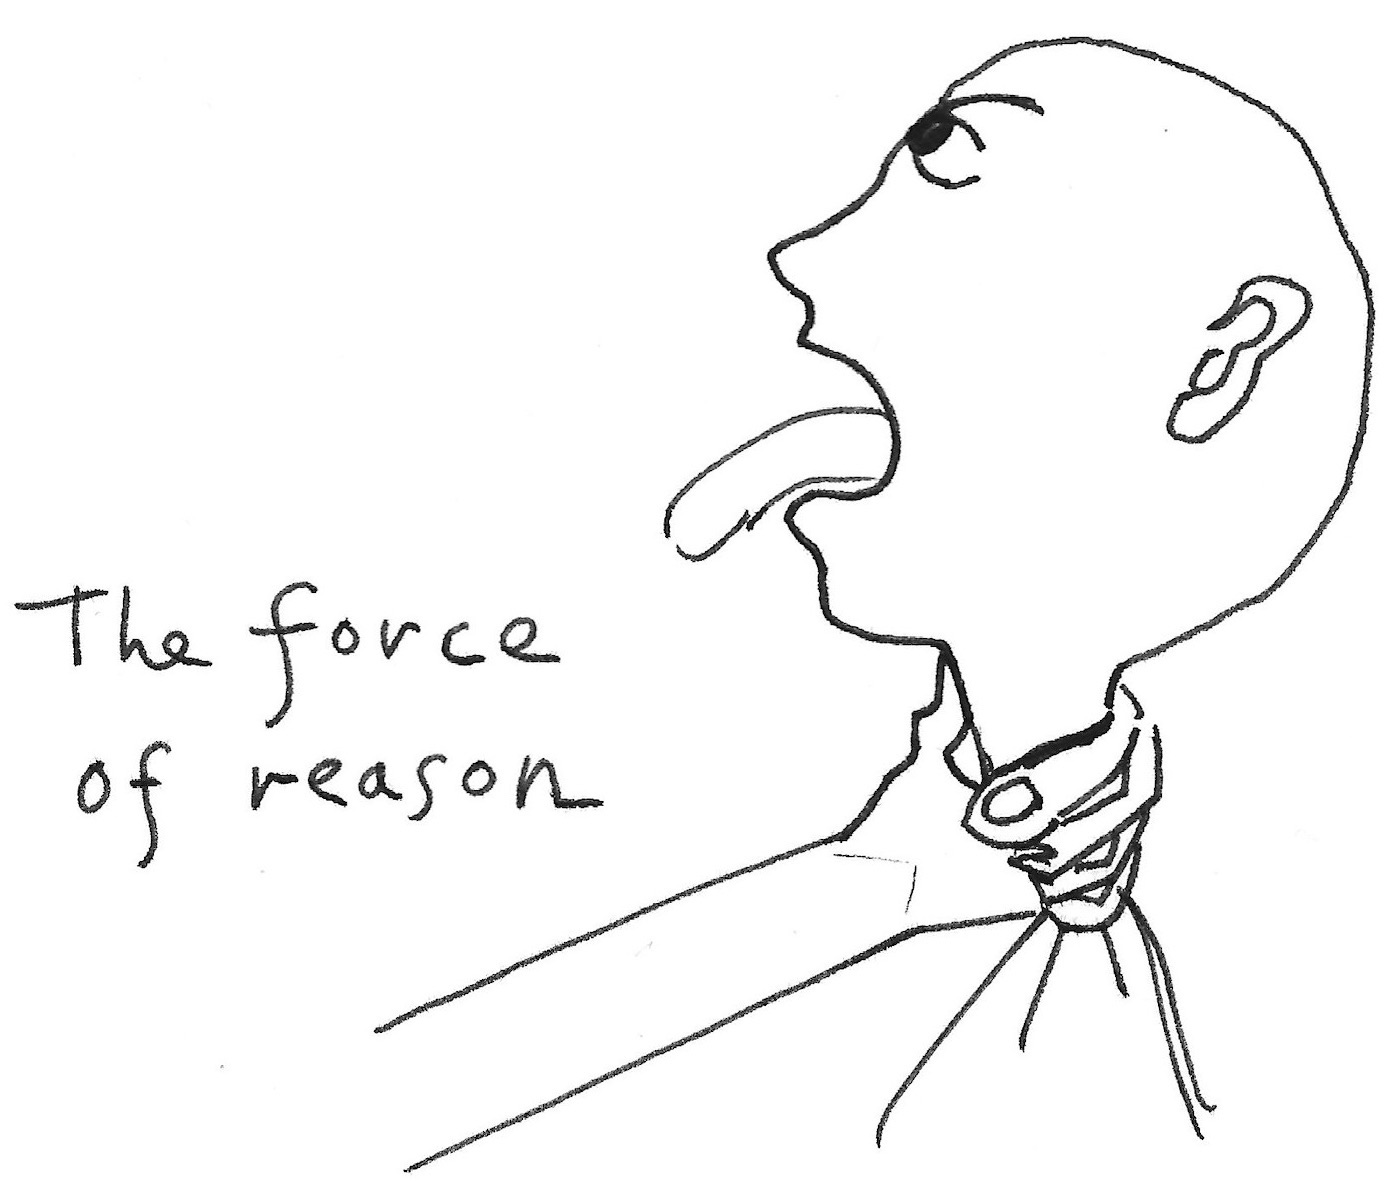 The force
of reason